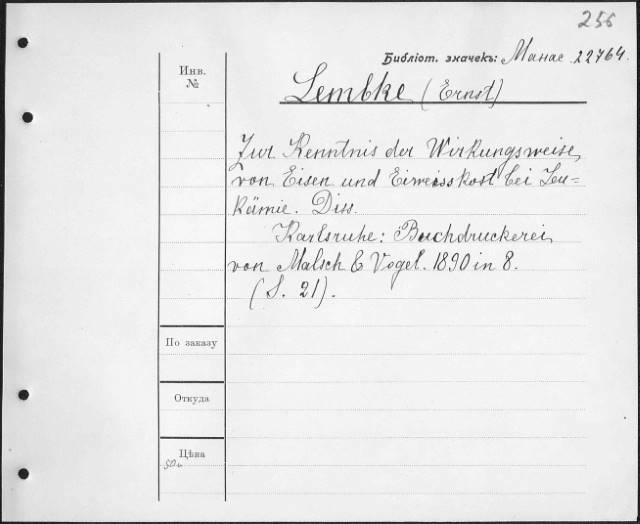 255
Библіот. значекъ: Манас 22764.
Инв.
№
Lembke (Ernst)
Zur Kenntnis der Wirkungsweise
von Eisen und Eiweisskost bei Leu=
kämie. Diss.
Karlsruhe: Buchdruckerei
von Malsch & Vogel. 1890 in 8.
(S. 21).
По заказу
Откуда
Цѣна